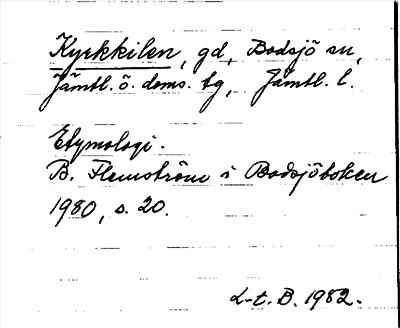 Kyrkkilen, gd, Bodsjö sn,
Jämtl. ö. doms. tg, Jämtl. l.
Etymologi.
B. Flemström i Bodsjöboken
1980, s. 20.
L-t. B. 1982.